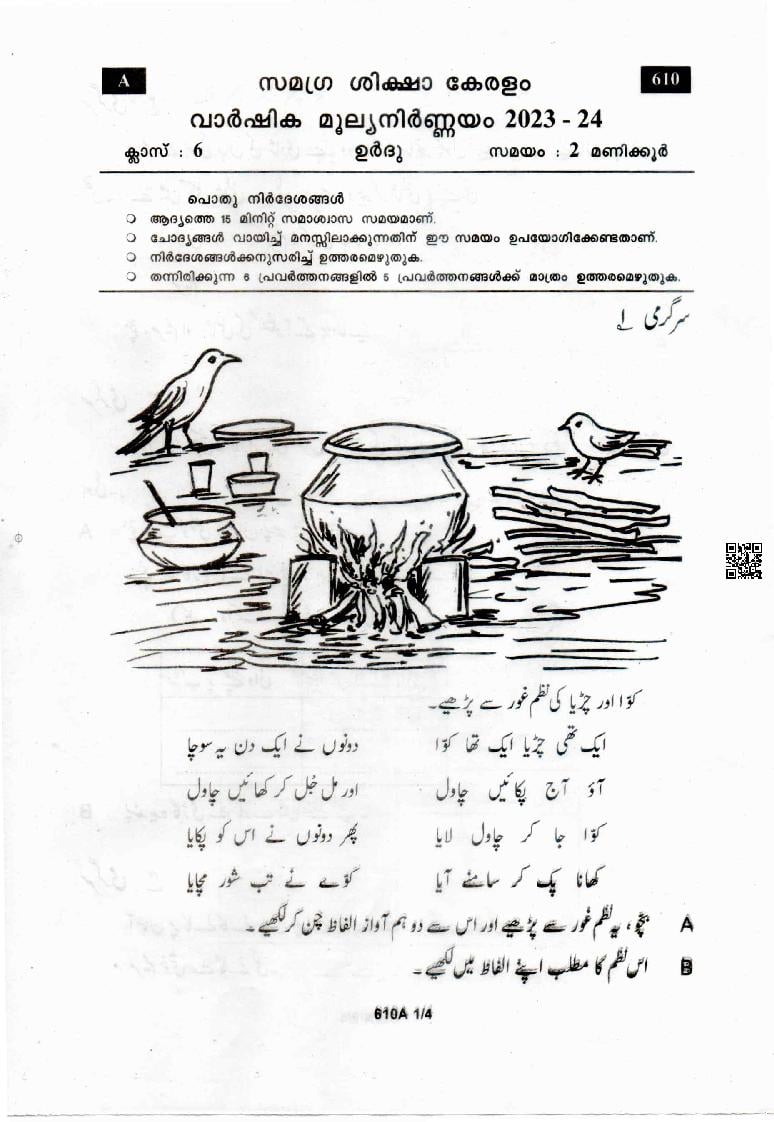 A
സമഗ്ര ശിക്ഷാ കേരളം
610
വാർഷിക മൂല്യനിർണ്ണയം 2023 - 24
ക്ലാസ് : 6 ഉർദു സമയം : 2 മണിക്കൂർ
പൊതു നിർദേശങ്ങൾ
ആദ്യത്തെ 15 മിനിറ്റ് സമാശ്വാസ സമയമാണ്.
ചോദ്യങ്ങൾ വായിച്ച് മനസ്സിലാക്കുന്നതിന് ഈ സമയം ഉപയോഗിക്കേണ്ടതാണ്.
നിർദേശങ്ങൾക്കനുസരിച്ച് ഉത്തരമെഴുതുക.
തന്നിരിക്കുന്ന 6 പ്രവർത്തനങ്ങളിൽ 5 പ്രവർത്തനങ്ങൾക്ക് മാത്രം ഉത്തരമെഴുതുക.
سرگرمی ۱
کوّا اور چڑیا کی نظم غور سے پڑھیے۔
ایک تھی چڑیا ایک تھا کوّا دونوں نے ایک دن یہ سوچا
آؤ آج پکائیں چاول اور مل جُل کر کھائیں چاول
کوّا جا کر چاول لایا پھر دونوں نے اس کو پکایا
کھانا پک کر سامنے آیا کوّے نے تب شور مچایا
A بچّو، یہ نظم غور سے پڑھیے اور اس سے دو ہم آواز الفاظ چن کر لکھیے۔
B اس نظم کا مطلب اپنے الفاظ میں لکھیے۔
610A 1/4